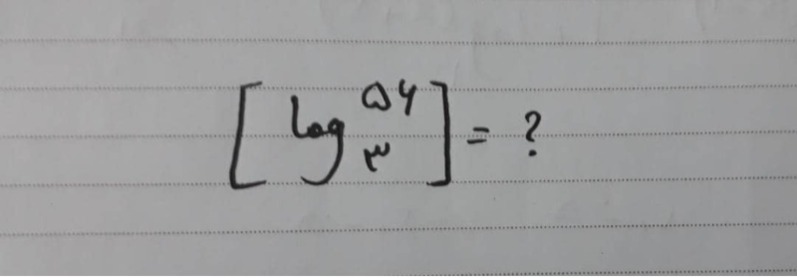 [log_۳^۵۶] = ?